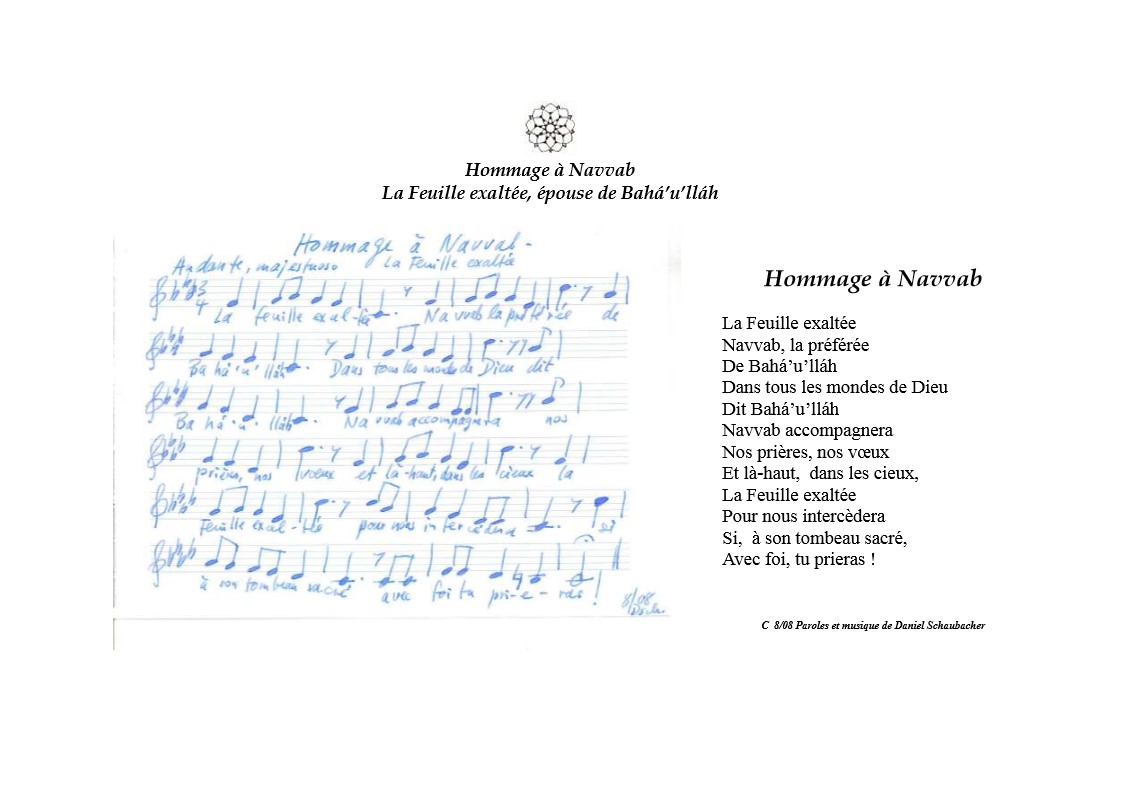 Hommage à Navvab
La Feuille exaltée, épouse de Bahá’u’lláh
Hommage à Navvab -
Andante, majestuoso La Feuille exaltée
3
4
La feuille exal-tée Navvab la préférée de
Bahá'u'lláh Dans tous les mondes de Dieu dit
Bahá'u'lláh Navvab accompagnera nos
prières, nos vœux et là-haut, dans les cieux la
Feuille exal-tée pour nous intercèdera si
à son tombeau sacré avec foi tu pri-e-ras !
8/08
Hommage à Navvab
La Feuille exaltée
Navvab, la préférée
De Bahá’u’lláh
Dans tous les mondes de Dieu
Dit Bahá’u’lláh
Navvab accompagnera
Nos prières, nos vœux
Et là-haut, dans les cieux,
La Feuille exaltée
Pour nous intercèdera
Si, à son tombeau sacré,
Avec foi, tu prieras !
C 8/08 Paroles et musique de Daniel Schaubacher